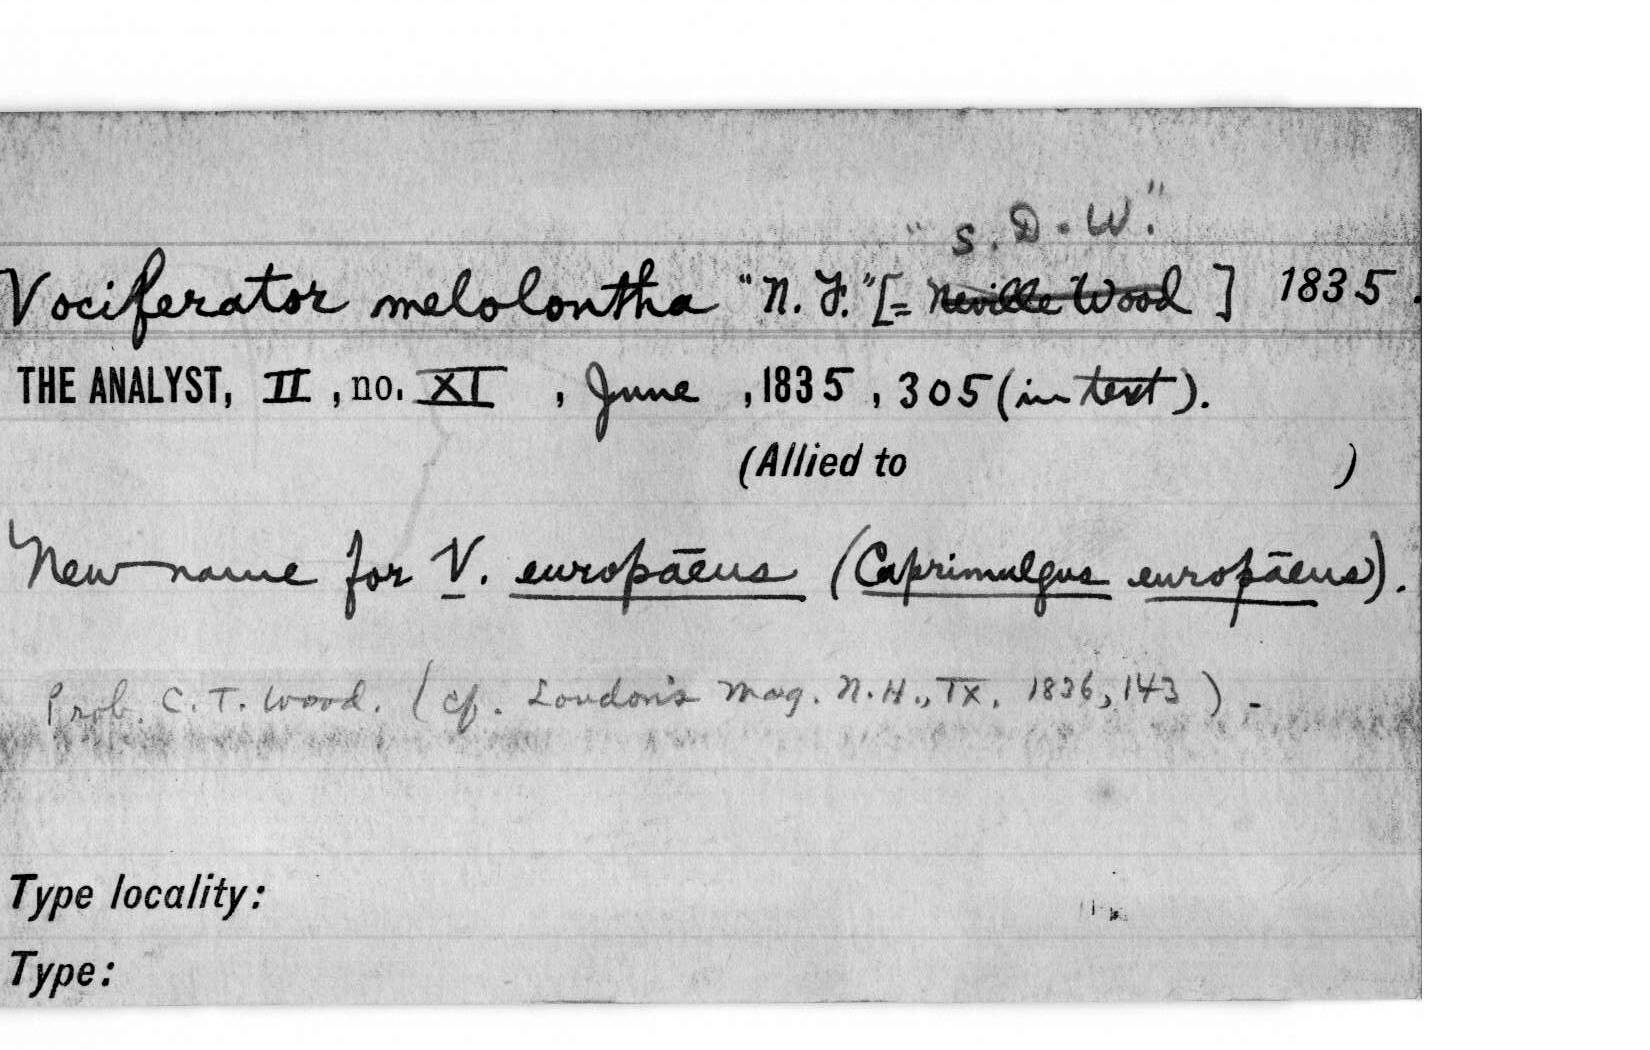 "S. D. W."
Vociferator melolontha "N. F." [= Neville Wood] 1835.
THE ANALYST, II, no. XI, June, 1835, 305 (in text).
(Allied to )
New name for V. europāeus (Caprimulgus europāeus).
Prob. C. T. Wood. (cf. Loudon's Mag. N. H., IX, 1836, 143). -
Type locality:
Type: